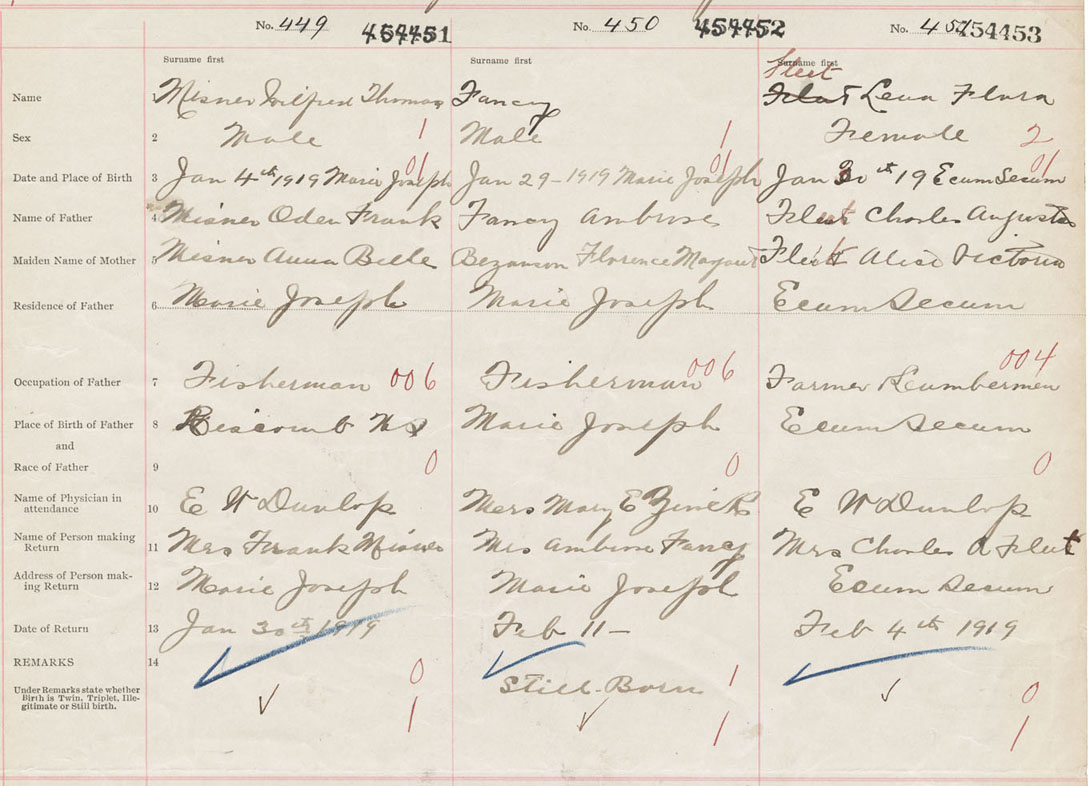 No. 449 454451 No. 450 454452 No. 451 454453
Surname first Surname first Surname first
Fleet
Name 1 Misner Wilfred Thomas Fancy Fleet Lena Flora
Sex 2 Male 1 Male 1 Female 2
01 01 01
Date and Place of Birth 3 Jan 4th 1919 Marie Joseph Jan 29-1919 Marie Joseph Jan 30th 19 Ecum Secum
Name of Father 4 Misner Oden Frank Fancy Ambrose Fleet Charles Augustus
Maiden Name of Mother 5 Misner Anna Belle Bezanson Florence Margaret Fleet Alice Victoria
Residence of Father 6 Marie Joseph Marie Joseph Ecum Secum
Occupation of Father 7 Fisherman 006 Fisherman 006 Farmer & Lumberman 004
Place of Birth of Father 8 Liscomb NS Marie Joseph Ecum Secum
and
Race of Father 9 0 0 0
Name of Physician in
attendance 10 E W Dunlop Mers Mary E Zinck E W Dunlop
Name of Person making
Return 11 Mrs Frank Misner Mrs Ambrose Fancy Mrs Charles A Fleet
Address of Person mak-
ing Return 12 Marie Joseph Marie Joseph Ecum Secum
Date of Return 13 Jan 30th 1919 Feb 11- Feb 4th 1919
REMARKS 14 0 Still-Born 1 0
Under Remarks state whether
Birth is Twin, Triplet, Ille-
gitimate or Still birth.
1 1 1